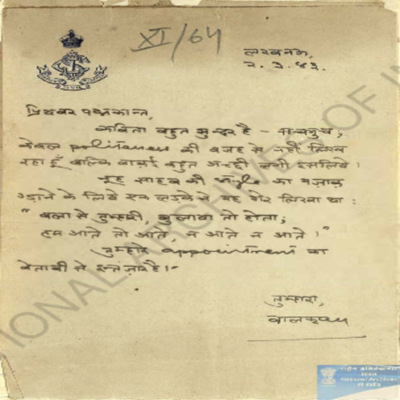 XI/64
लखनऊ,
२.३.४३.
प्रियवर पद्मकान्त,
कविता बहुत सुन्दर है - सचमुच;
केवल politeness की वजह से नहीं लिख
रहा हूँ बल्कि वाकई बहुत अच्छी लगी इसलिये।
साहब की style का मज़ाक
उड़ाने के लिये एक लड़के ने यह शेर लिखा था:
"बला से तुम्हारी, बुलावा तो होता;
हम आते तो आते, न आते न आते।"
तुम्हारे appointment का
बेताबी से इन्तज़ार है।
तुम्हारा,
बालकृष्ण
NATIONAL ARCHIVES OF IN